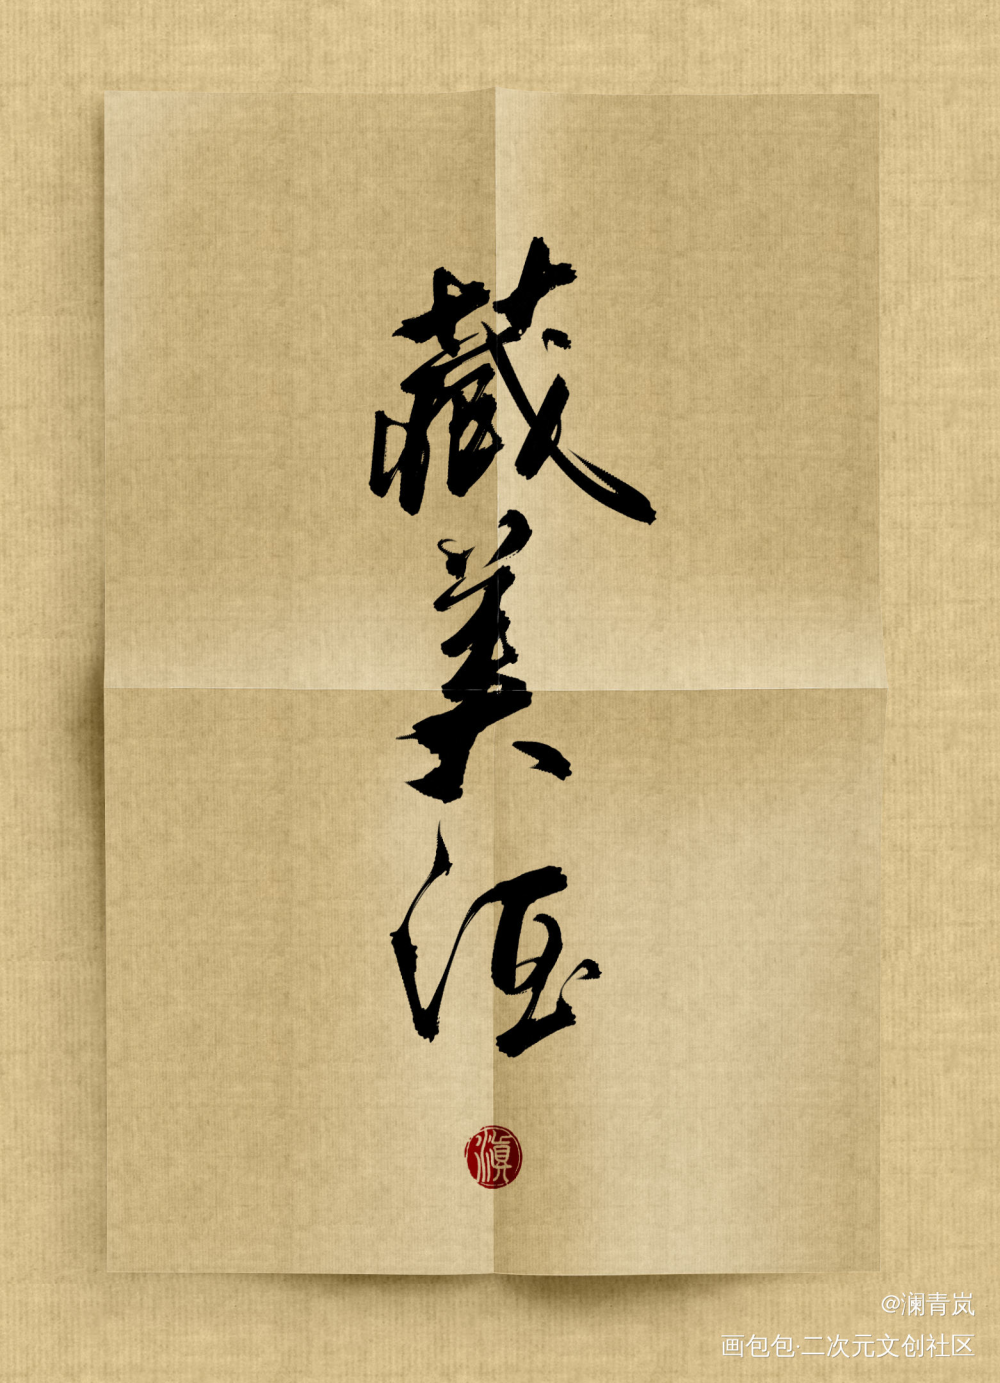 藏
美
酒
滇
@澜青岚
画包包·二次元文创社区